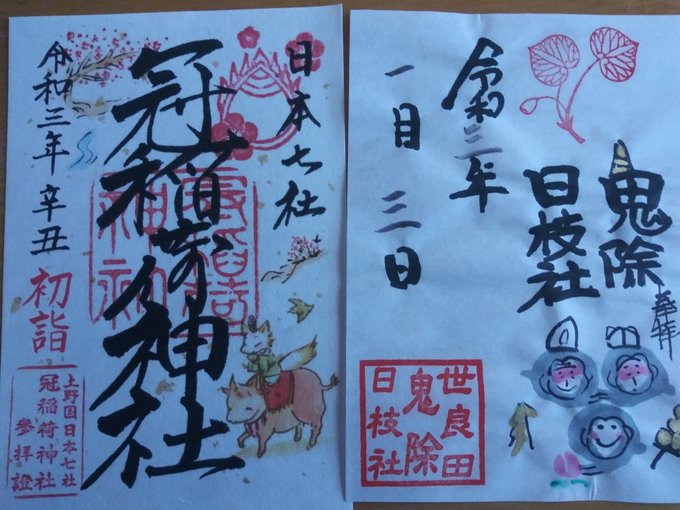 日本七社
冠稲荷神社
令和三年 辛丑
初詣
上野国日本七社
冠稲荷神社
参拝證
鬼除
日枝社
奉拝
令和三年
一月 三日
世良田
鬼除
日枝社